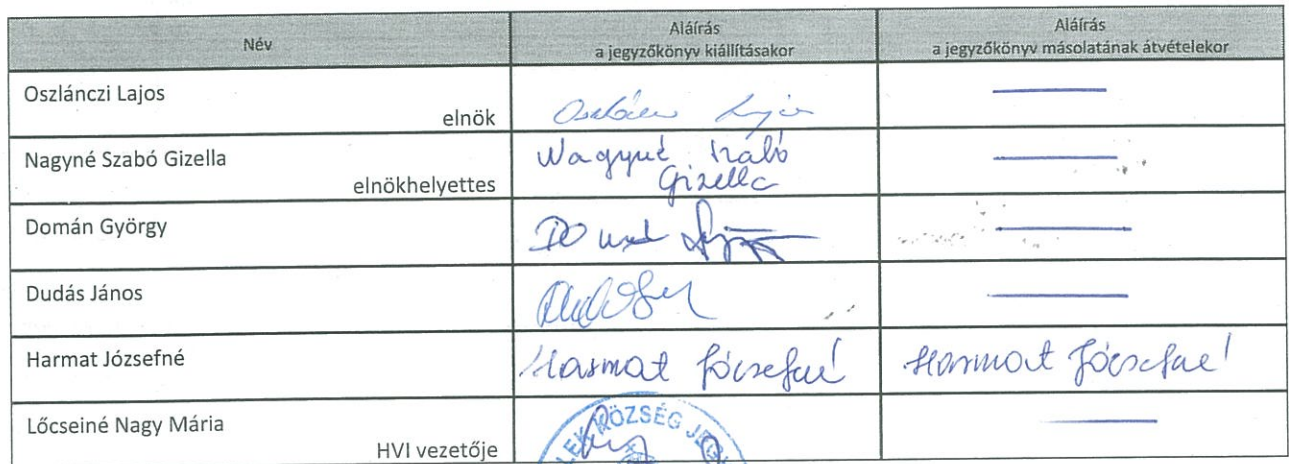 Név
Aláírás
a jegyzőkönyv kiállításakor
Aláírás
a jegyzőkönyv másolatának átvételekor
Oszlánczi Lajos
elnök
Nagyné Szabó Gizella
elnökhelyettes
Nagyné Szabó
Gizella
Domán György
Dudás János
Harmat Józsefné
Harmat Józsefné
Harmat Józsefné
Lőcseiné Nagy Mária
HVI vezetője
KÖZSÉG